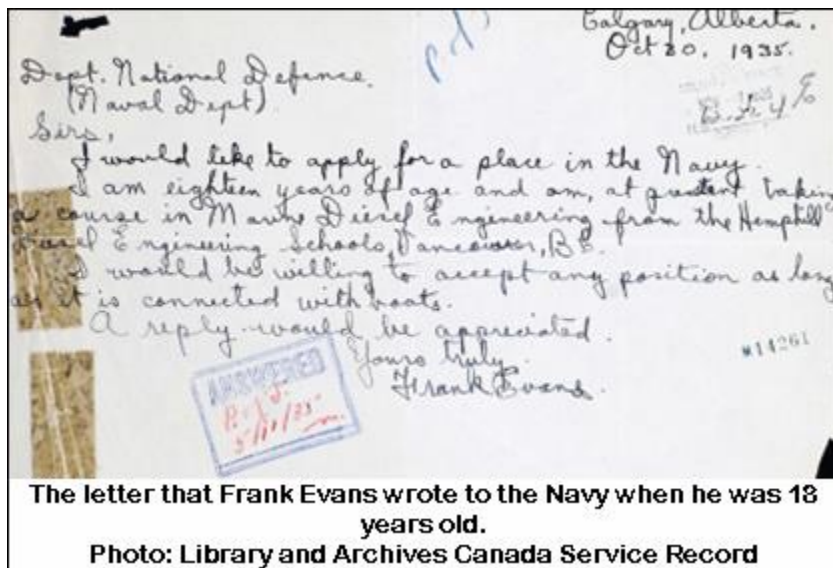 Calgary, Alberta.
Oct 30, 1935.
Dept. National Defence.
(Naval Dept)
Sirs,
I would like to apply for a place in the Navy.
I am eighteen years of age and am, at present taking
a course in Marine Diesel Engineering from the Hemphill
Diesel Engineering Schools, Vancouver, B.C.
I would be willing to accept any position as long
as it is connected with boats.
A reply would be appreciated.
Yours truly.
Frank Evans.
ANSWERED
5/11/35
14261
The letter that Frank Evans wrote to the Navy when he was 18
years old.
Photo: Library and Archives Canada Service Record